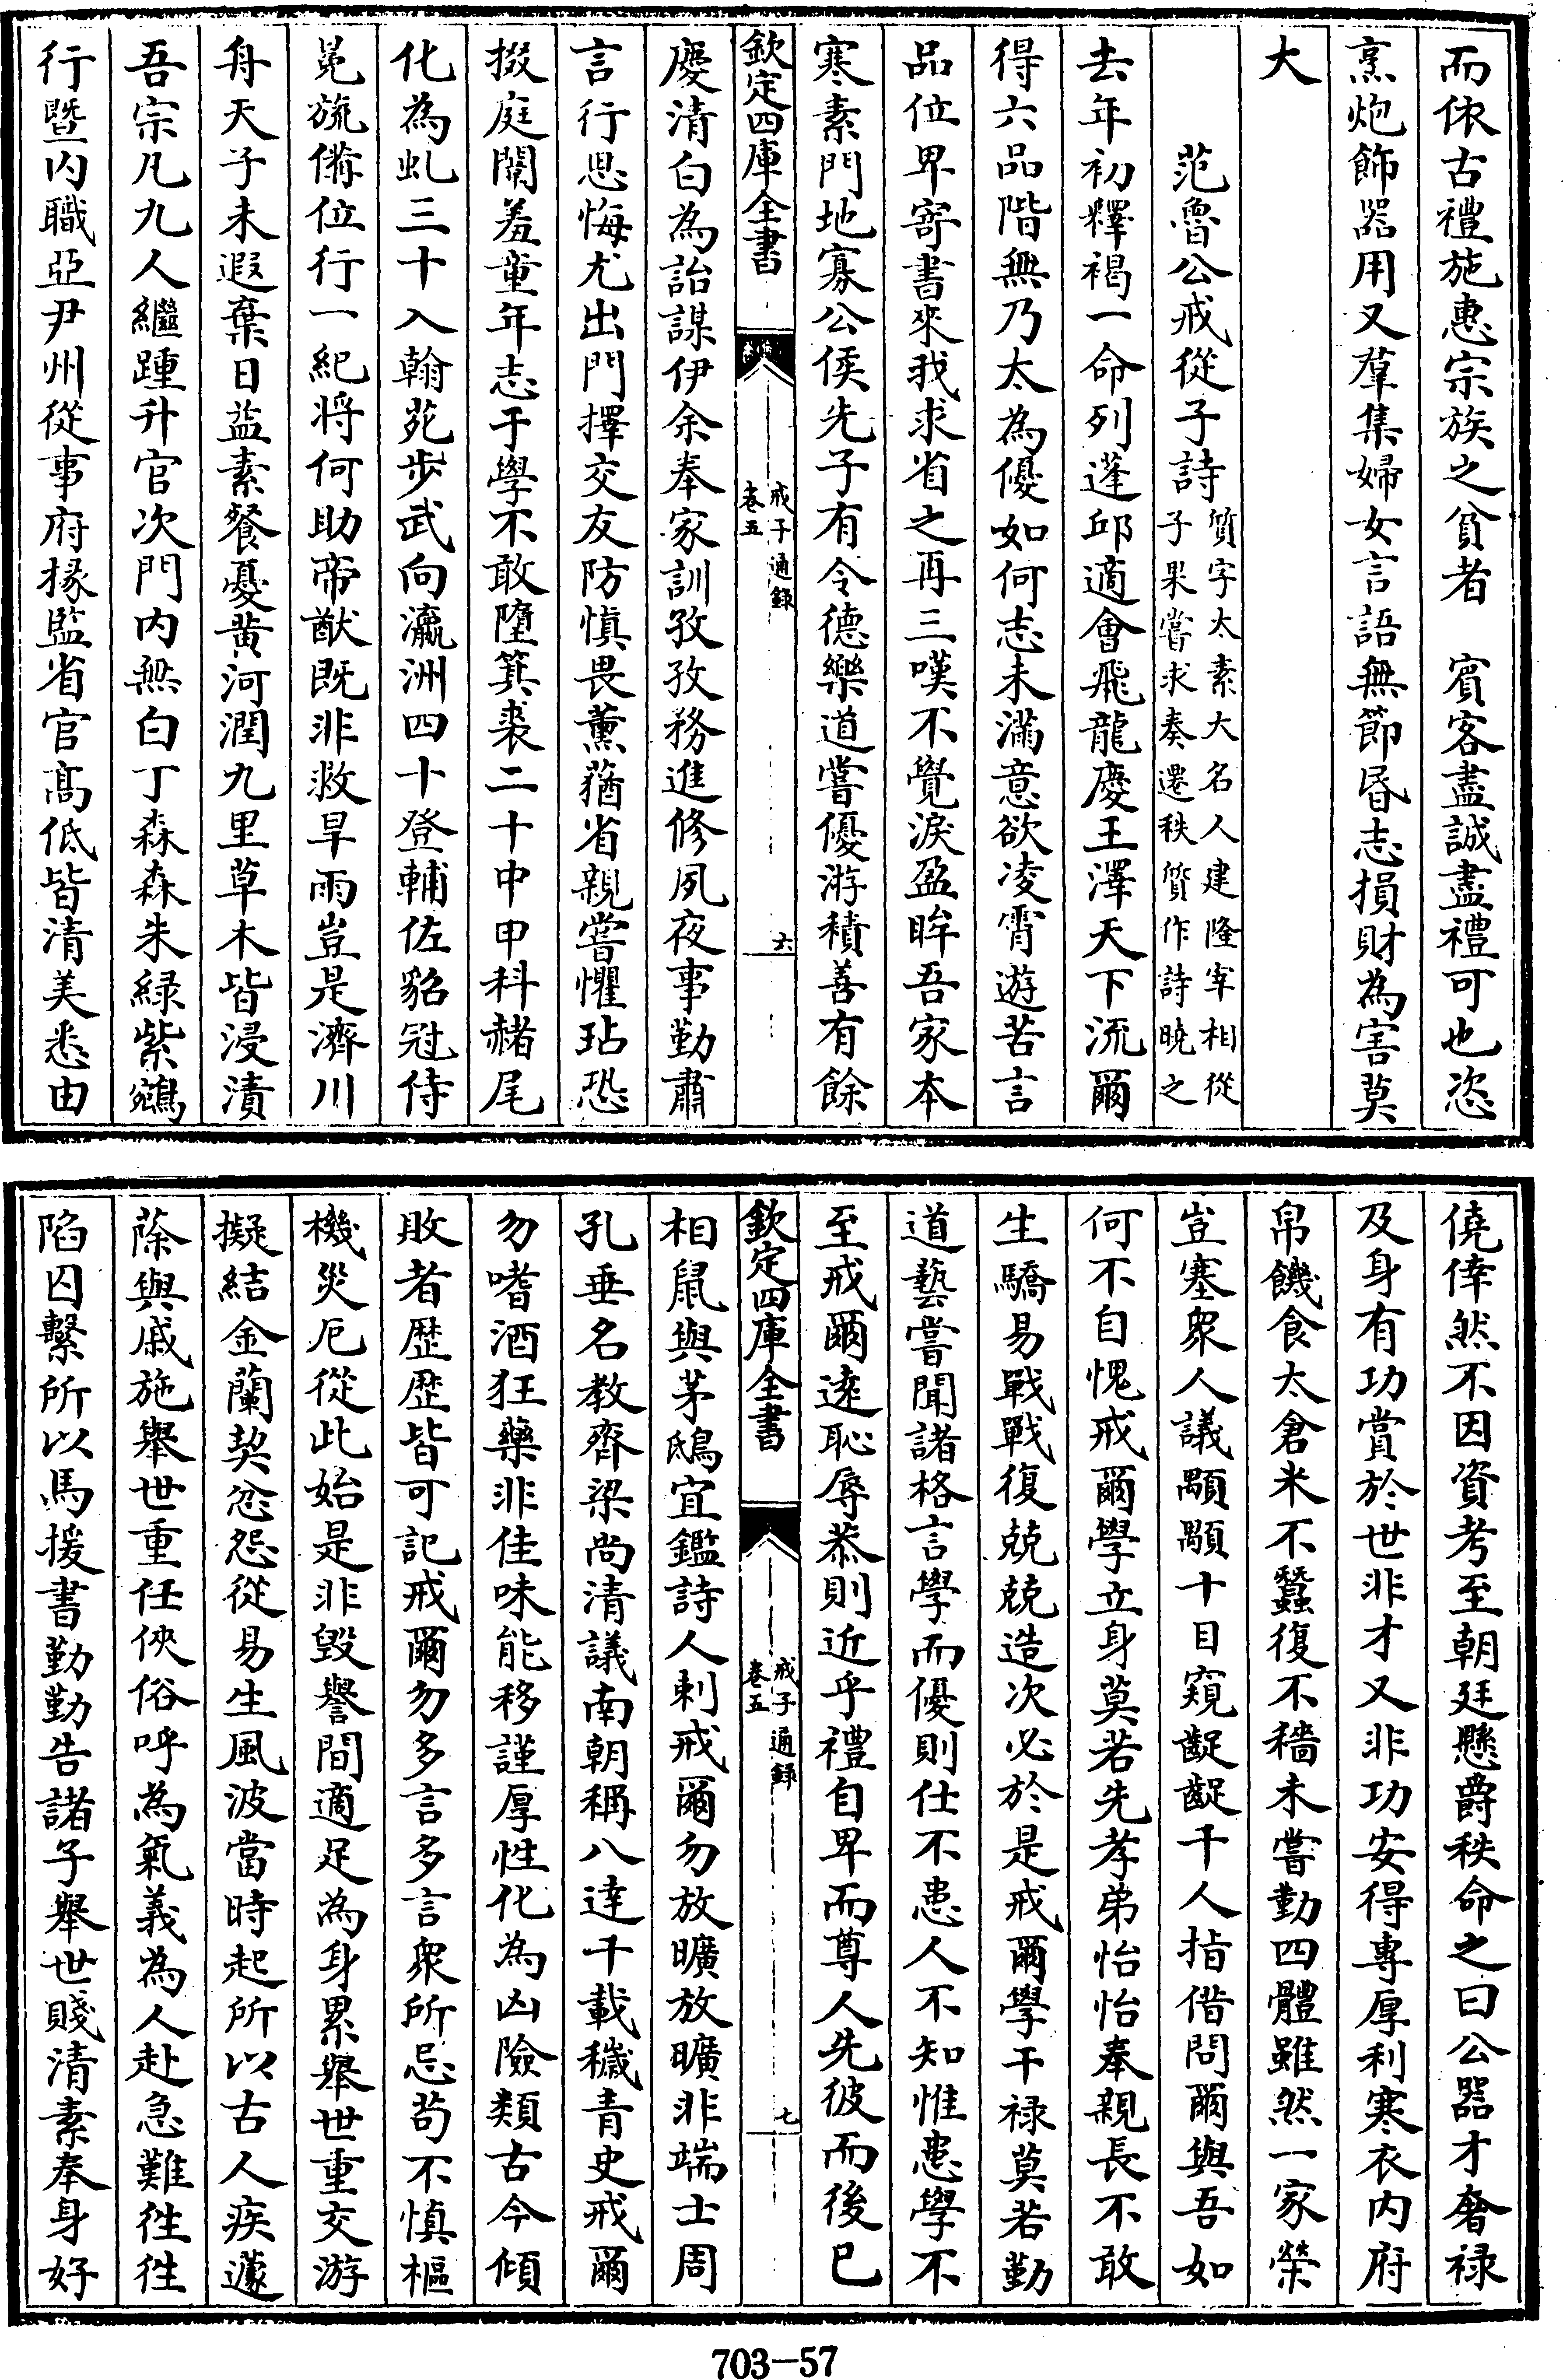 而依古禮施惠宗族之貧者　賓客盡誠盡禮可也恣
烹炮飾器用又羣集婦女言語無節昏志損財為害莫
大
范魯公戒從子詩質字太素大名人建隆宰相從
子果嘗求奏遷秩質作詩曉之
去年初釋褐一命列蓬邱適會飛龍慶王澤天下流爾
得六品階無乃太為優如何志未滿意欲凌霄遊苦言
品位卑寄書來我求省之再三嘆不覺淚盈眸吾家本
寒素門地寡公侯先子有令德樂道嘗優游積善有餘
欽定四庫全書
戒子通錄
卷五
六
慶清白為詒謀伊余奉家訓孜孜務進修夙夜事勤肅
言行思悔尤出門擇交友防慎畏薰蕕省親嘗懼玷恐
掇庭闈羞童年志于學不敢墮箕裘二十中甲科赭尾
化為虬三十入翰苑步武向瀛洲四十登輔佐貂冠侍
冕旒備位行一紀將何助帝猷既非救旱雨豈是濟川
舟天子未遐棄日益素餐憂黃河潤九里草木皆浸漬
吾宗凡九人繼踵升官次門內無白丁森森朱綠紫鵷
行暨內職亞尹州從事府掾監省官高低皆清美悉由
僥倖然不因資考至朝廷懸爵秩命之曰公器才奢祿
及身有功賞於世非才又非功安得專厚利寒衣內府
帛饑食太倉米不蠶復不穡未嘗勤四體雖然一家榮
豈塞衆人議顒顒十目窺齪齪千人指借問爾與吾如
何不自愧戒爾學立身莫若先孝弟怡怡奉親長不敢
生驕易戰戰復兢兢造次必於是戒爾學干祿莫若勤
道藝嘗聞諸格言學而優則仕不患人不知惟患學不
至戒爾遠恥辱恭則近乎禮自卑而尊人先彼而後已
欽定四庫全書
戒子通錄
卷五
七
相鼠與茅鴟宜鑑詩人刺戒爾勿放曠放曠非端士周
孔垂名教齊梁尚清議南朝稱八達千載穢青史戒爾
勿嗜酒狂藥非佳味能移謹厚性化為凶險類古今傾
敗者歷歷皆可記戒爾勿多言多言衆所忌苟不慎樞
機災厄從此始是非毀譽間適足為身累舉世重交游
擬結金蘭契忿怨從易生風波當時起所以古人疾蘧
蒢與戚施舉世重任俠俗呼為氣義為人赴急難往往
陷囚繫所以馬援書勤勤告諸子舉世賤清素奉身好
703-57